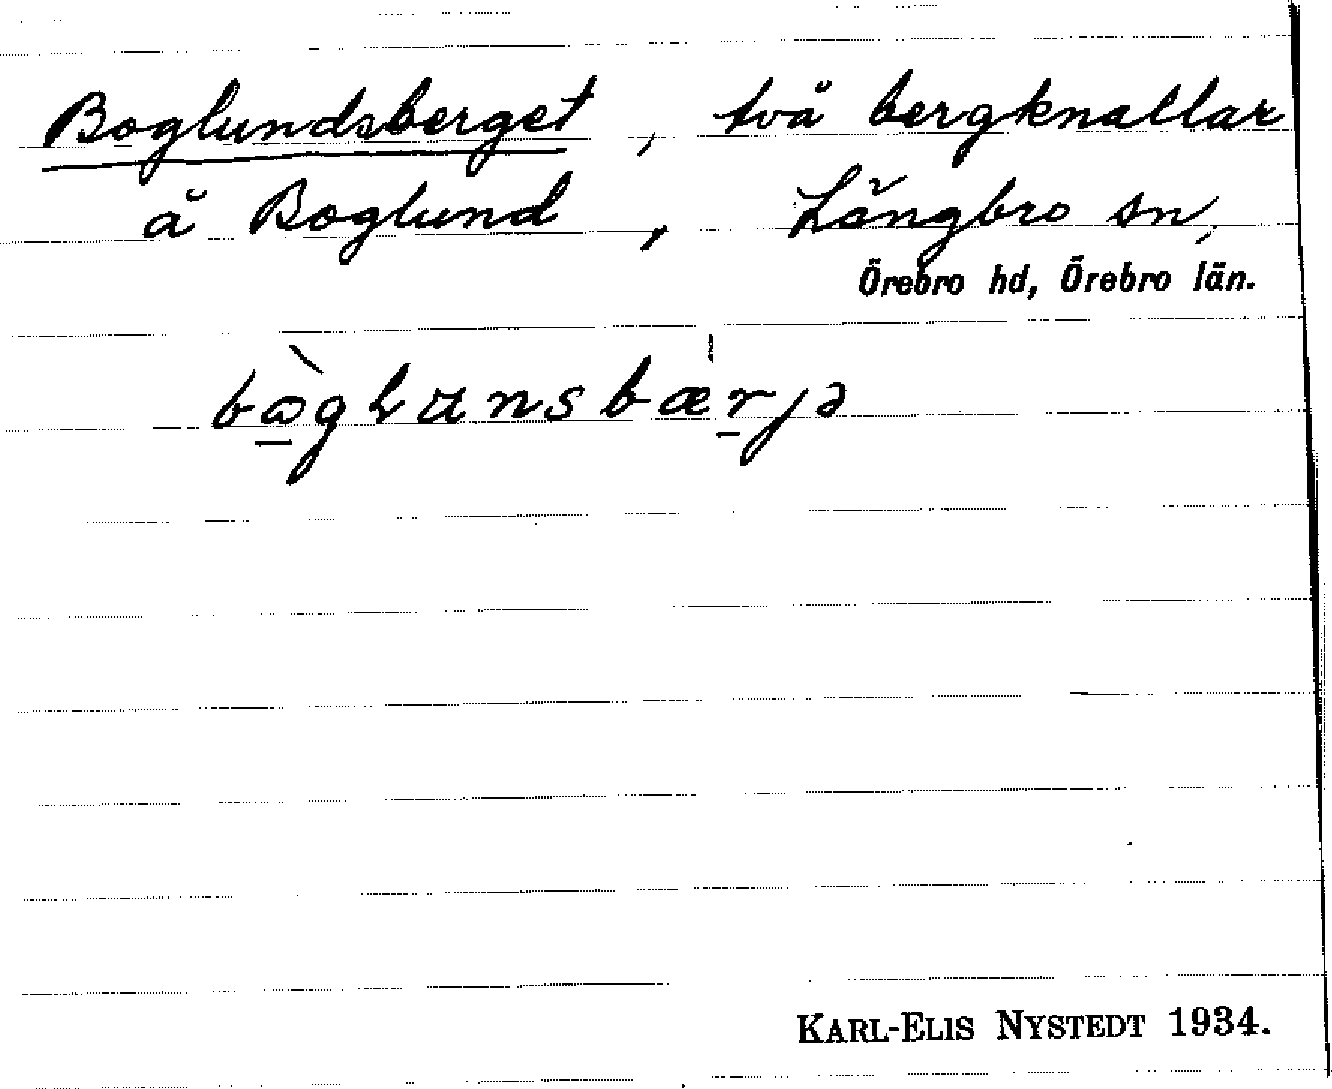 Boglundsberget, två bergknallar
å Boglund, Långbro sn,
Örebro hd, Örebro län.
bò̱gLunsbæṟjə
KARL-ELIS NYSTEDT 1934.